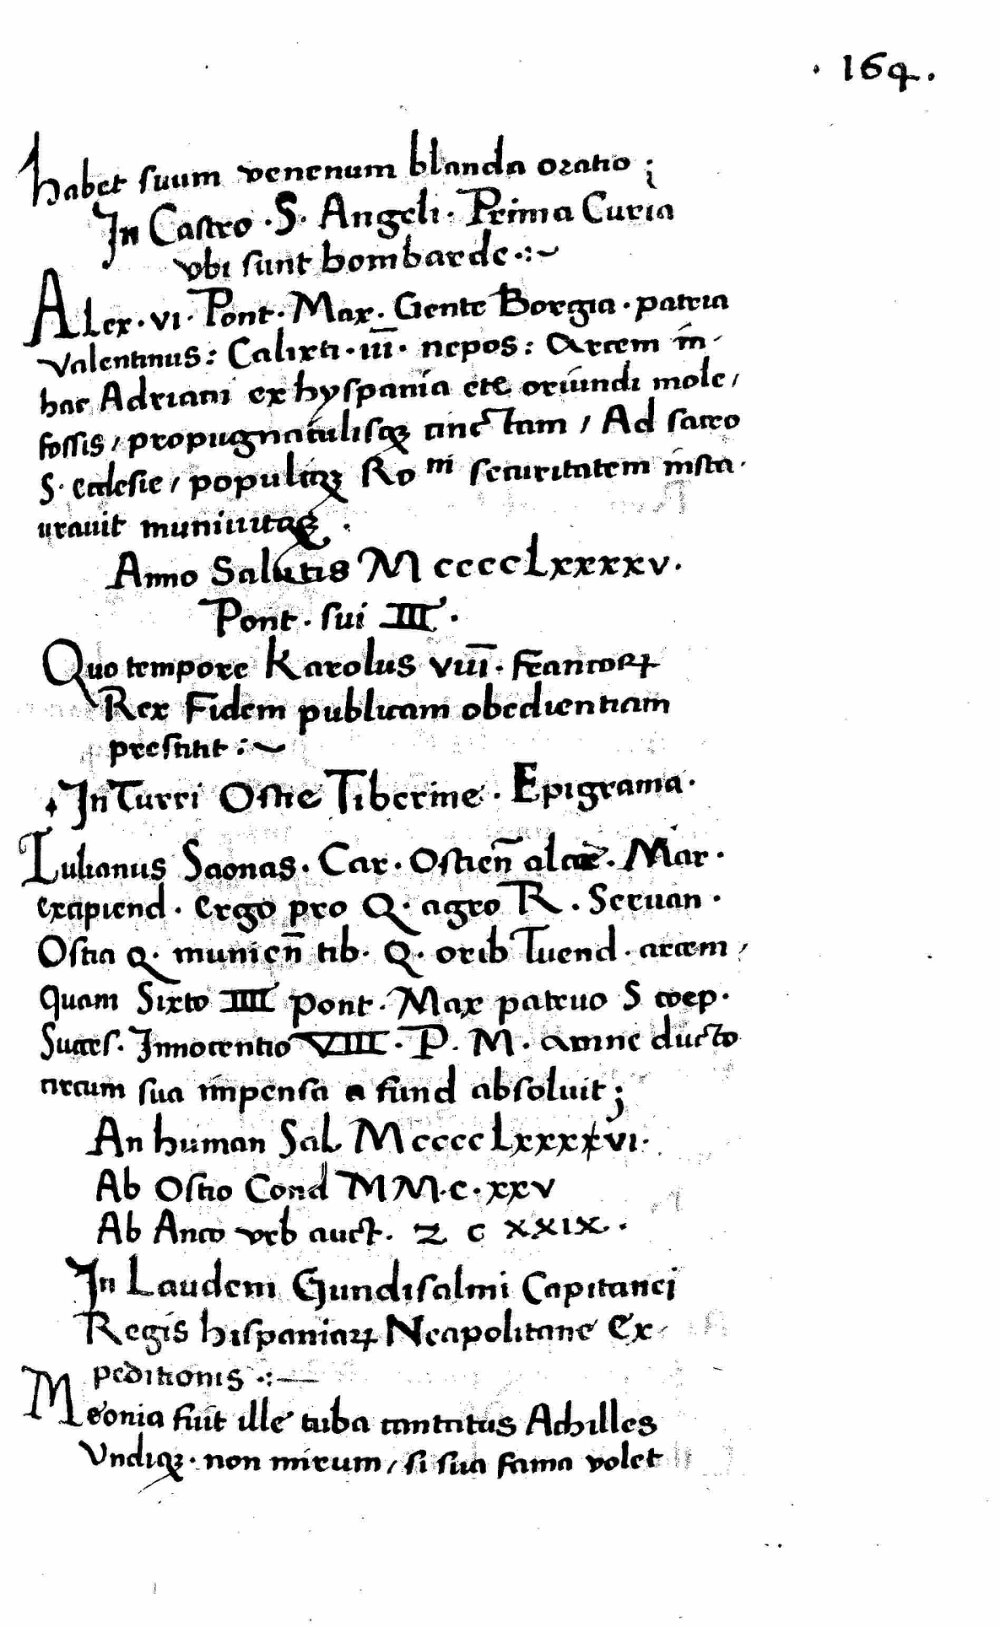 · 164 ·
habet suum venenum blanda oratio ;
In Castro · S · Angeli · Prima Curia
vbi sunt bombarde ·:~
Alex · vi · Pont · Max · Gente Borgia · patria
valentinus : Calixti · iii · nepos : Arcem in
hac Adriani ex hyspania ete oriundi mole /
fossis / propugnaculisqꝫ cinctam / Ad sacro
S · ecclesie / populiqꝫ Ro ni securitatem insta
urauit muniuitqꝫ ·
Anno Salutis M ccccLxxxxv ·
Pont · sui III ·
Quo tempore Karolus viii · francoꝝ
Rex Fidem publicam obedientiam
prestitit :~
In Turri Ostie Tiberine · Epigrama ·
Iulianus Saonas · Car · Ostien̄ · Mar ·
excipiend · ergo pro Q · agro R · Seruan ·
Ostia Q · munien̄ tib · Q · orib Tuend · arcem /
quam Sixto IIII Pont · Max patruo S coep ·
Succes · Innocentio VIII · P · M · amne ducto
circum sua impensa a fund absoluit ;
An human Sal M ccccLxxxxvi ·
Ab Ostio Cond MM · c · xxv
Ab Anco vrb auct · Z c xxix · ·
In Laudem Gundisalmi Capitanei
Regis hispaniaꝝ Neapolitane Ex
peditionis ·:—
Meonia fuit ille tuba cantatus Achilles
Vndiqꝫ · non mirum / si sua fama volet